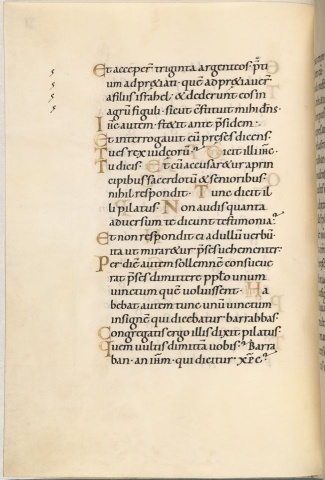 Et acceper̄ triginta argenteos. p̄ti
um adpretiati. quē adpretiaver̄
afiliis israhel. & dederunt eos in
agrū figuli. sicut c̄stituit mihi dn̄s.
Ihc̄ autem stetit ante p̄sidem.
Et interrogavit eū preses dicens.
Tu es rex iudeorū? Dicit illi ihc̄.
Tu dicis. Et cū accusar&ur aprin
cipibus sacerdotū & senioribus.
nihil respondit. Tunc dicit il
li pilatus. Non audis quanta
adversum te dicunt testimonia?
Et non respondit ei ad ullū verbū.
ita ut mirar&ur p̄ses vehementer.
Per diē autem sollemnē consueve
rat p̄ses dimittere pplo unum
vinctum quē voluissent. Ha
bebat autem tunc unū vinctum
insignē qui dicebatur barrabbas.
Congregatis ergo illis dixit pilatus.
Quem vultis dimittā vobis? Barra
ban. an ihm̄. qui dicitur xp̄c?